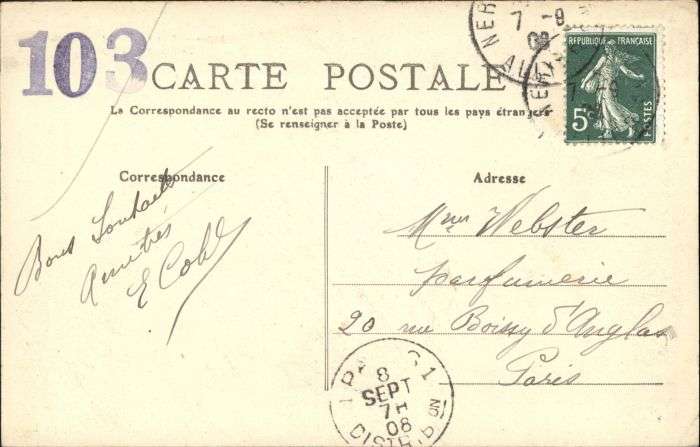 103
7 -9
08
NER
AL
CARTE POSTALE
REPUBLIQUE FRANÇAISE
5c
POSTES
La Correspondance au recto n'est pas acceptée par tous les pays étrangers
(Se renseigner à la Poste)
Correspondance
Adresse
Bons Souhaits
Amitiés
E Cohl
Mme Webster
parfumerie
20 rue Boissy d'Anglas
Paris
8
SEPT
7H
08
DISTRIB